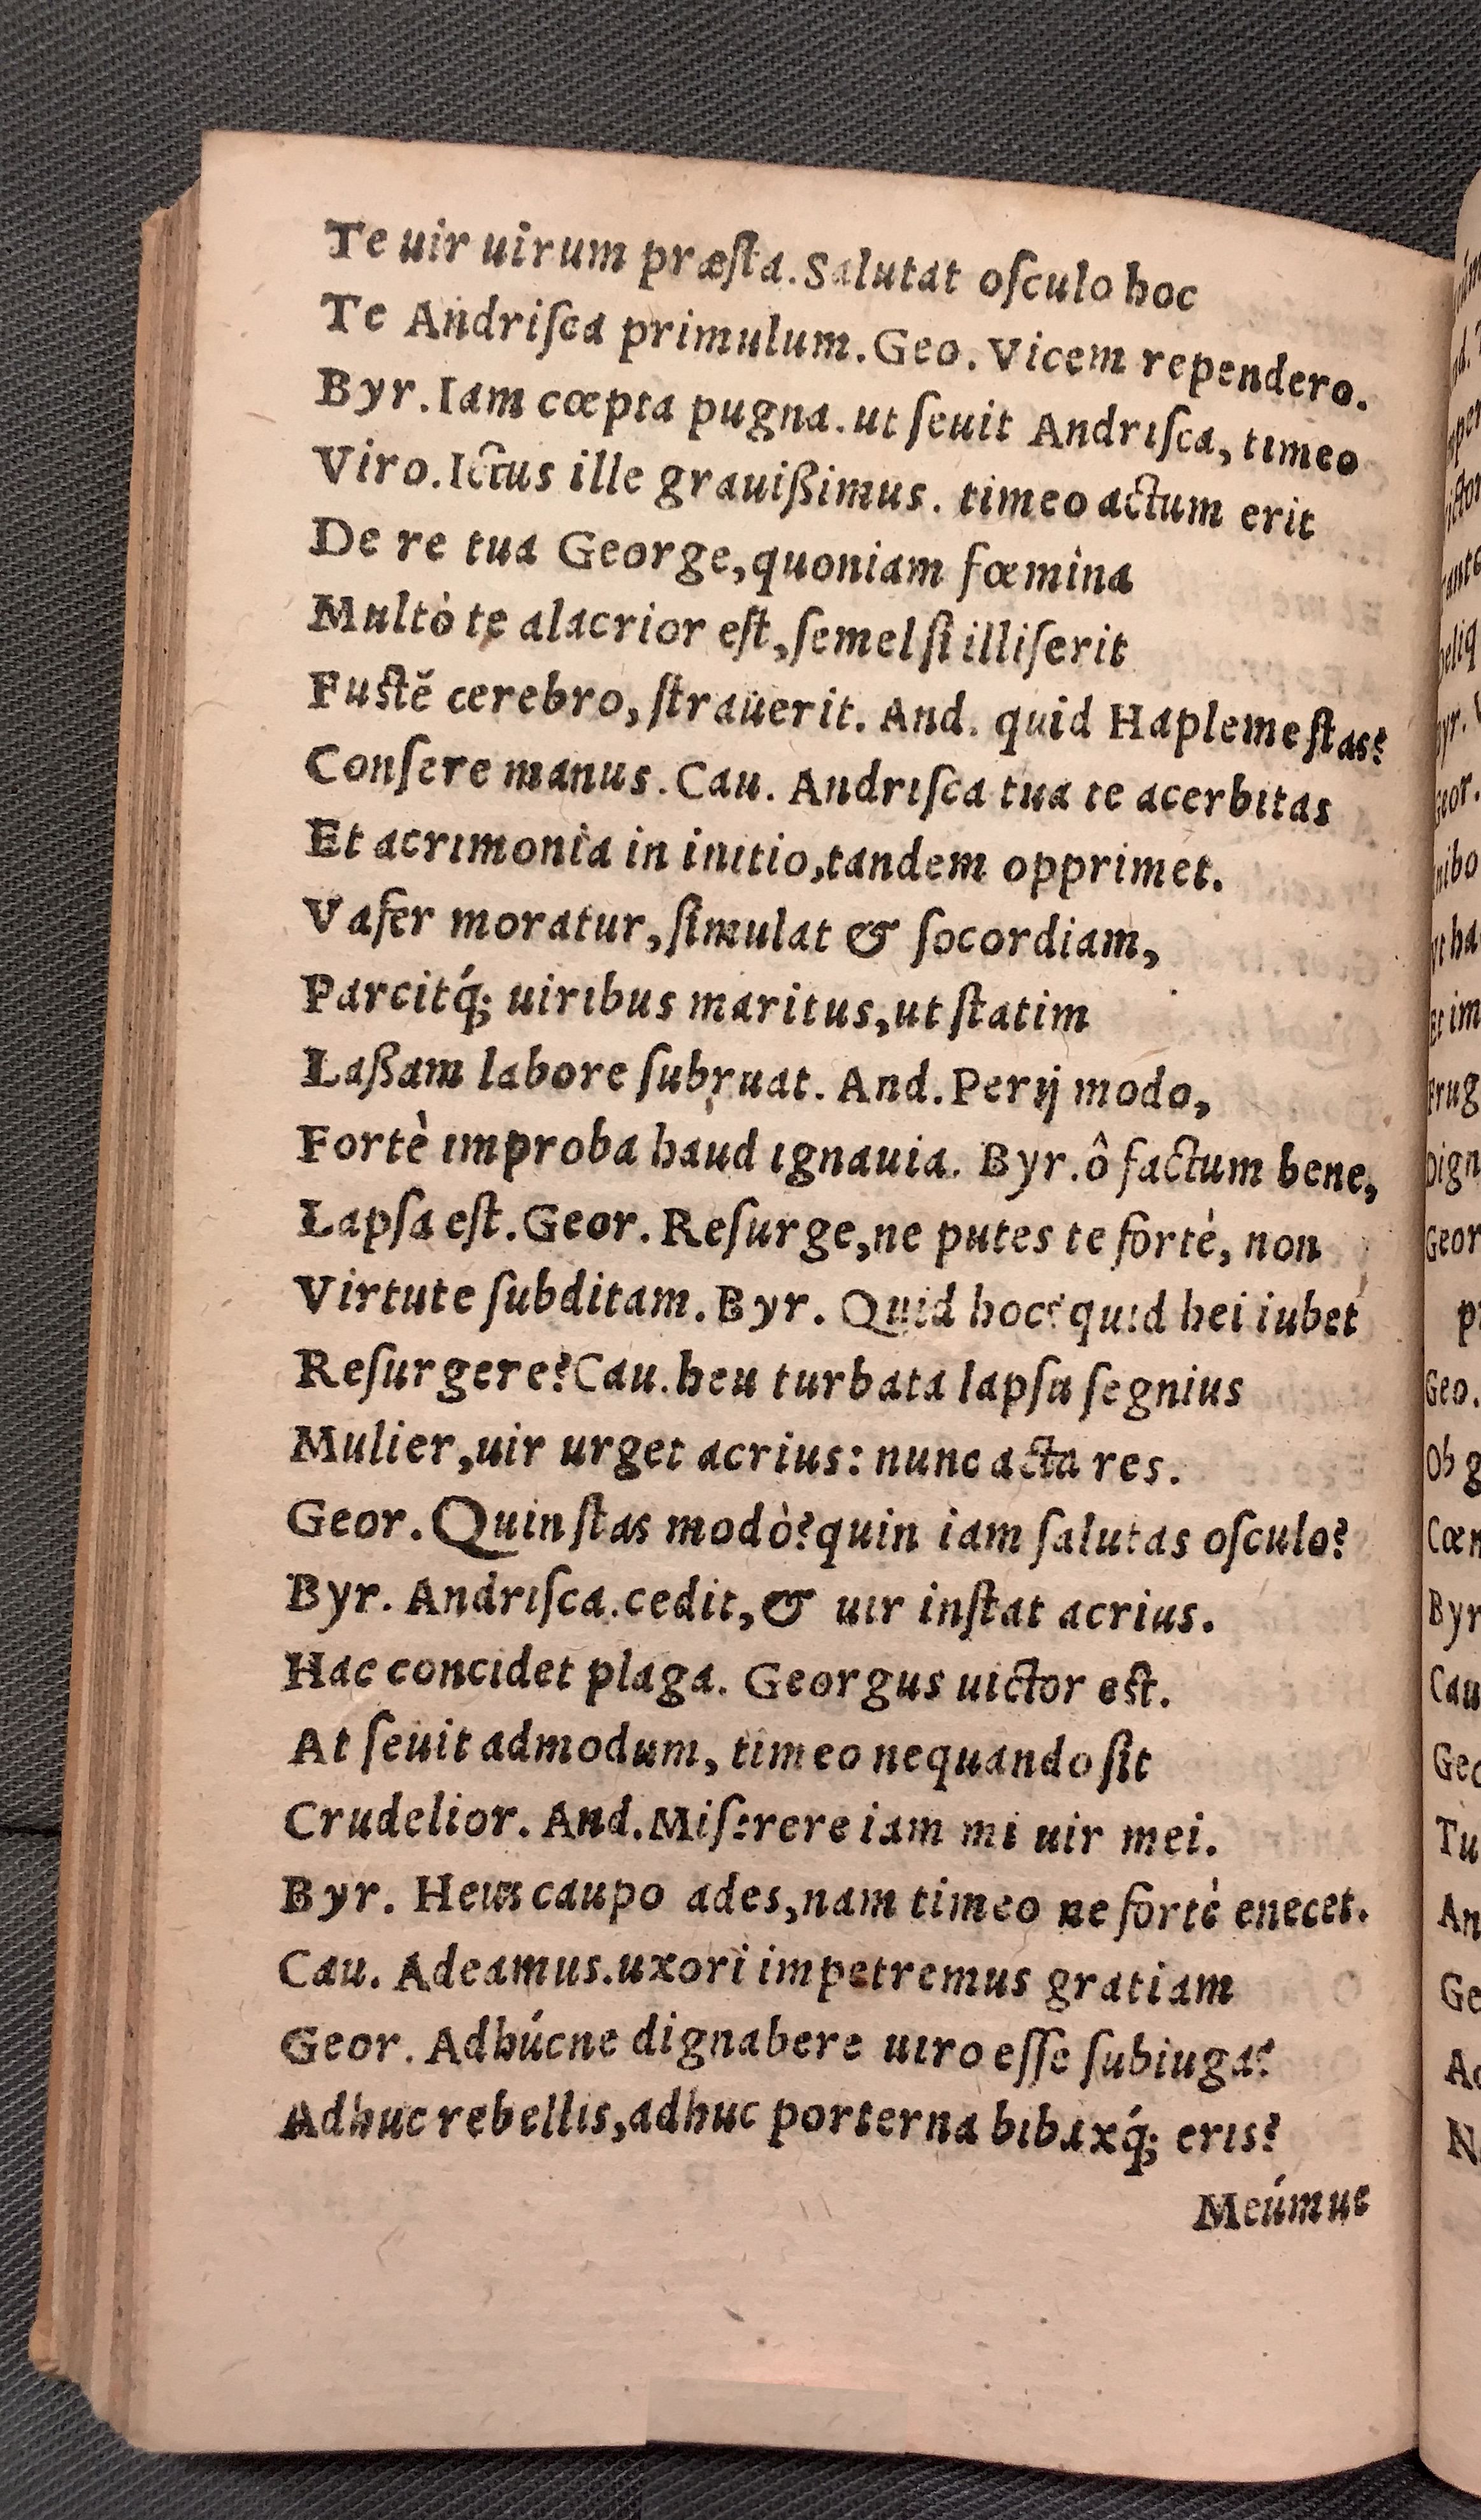 Te uir uirum præſta. Salutat oſculo hoc
Te Andriſca primulum. Geo. Vicem rependero.
Byr. Iam cœpta pugna. ut ſeuit Andriſca, timeo
Viro. Ictus ille grauißimus. timeo actum erit
De re tua George, quoniam fœmina
Multò te alacrior eſt, ſemel ſi illiſerit
Fuſtě cerebro, ſtrauerit. And. quid Hapleme ſtas?
Conſere manus. Cau. Andriſca tua te acerbitas
Et acrimonia in initio, tandem opprimet.
Vafer moratur, ſimulat & ſocordiam,
Parcitq́; uiribus maritus, ut ſtatim
Laßam labore ſubruat. And. Perij modo,
Fortè improba haud ignauia. Byr. ô factum bene,
Lapſa eſt. Geor. Reſurge, ne putes te fortè, non
Virtute ſubditam. Byr. Quid hoc? quid hei iubet
Reſurgere? Cau. heu turbata lapſu ſegnius
Mulier, uir urget acrius: nunc acta res.
Geor. Quin ſtas modò? quin iam ſalutas oſculo?
Byr. Andriſca. cedit, & uir inſtat acrius.
Hac concidet plaga. Georgus uictor eſt.
At ſeuit admodum, timeo nequando ſit
Crudelior. And. Miſerere iam mi uir mei.
Byr. Heus caupo ades, nam timeo ne fortè enecet.
Cau. Adeamus. uxori impetremus gratiam
Geor. Adhúcne dignabere uiro eſſe ſubiuga?
Adhuc rebellis, adhuc porterna bibaxq́; eris?
Meúmue